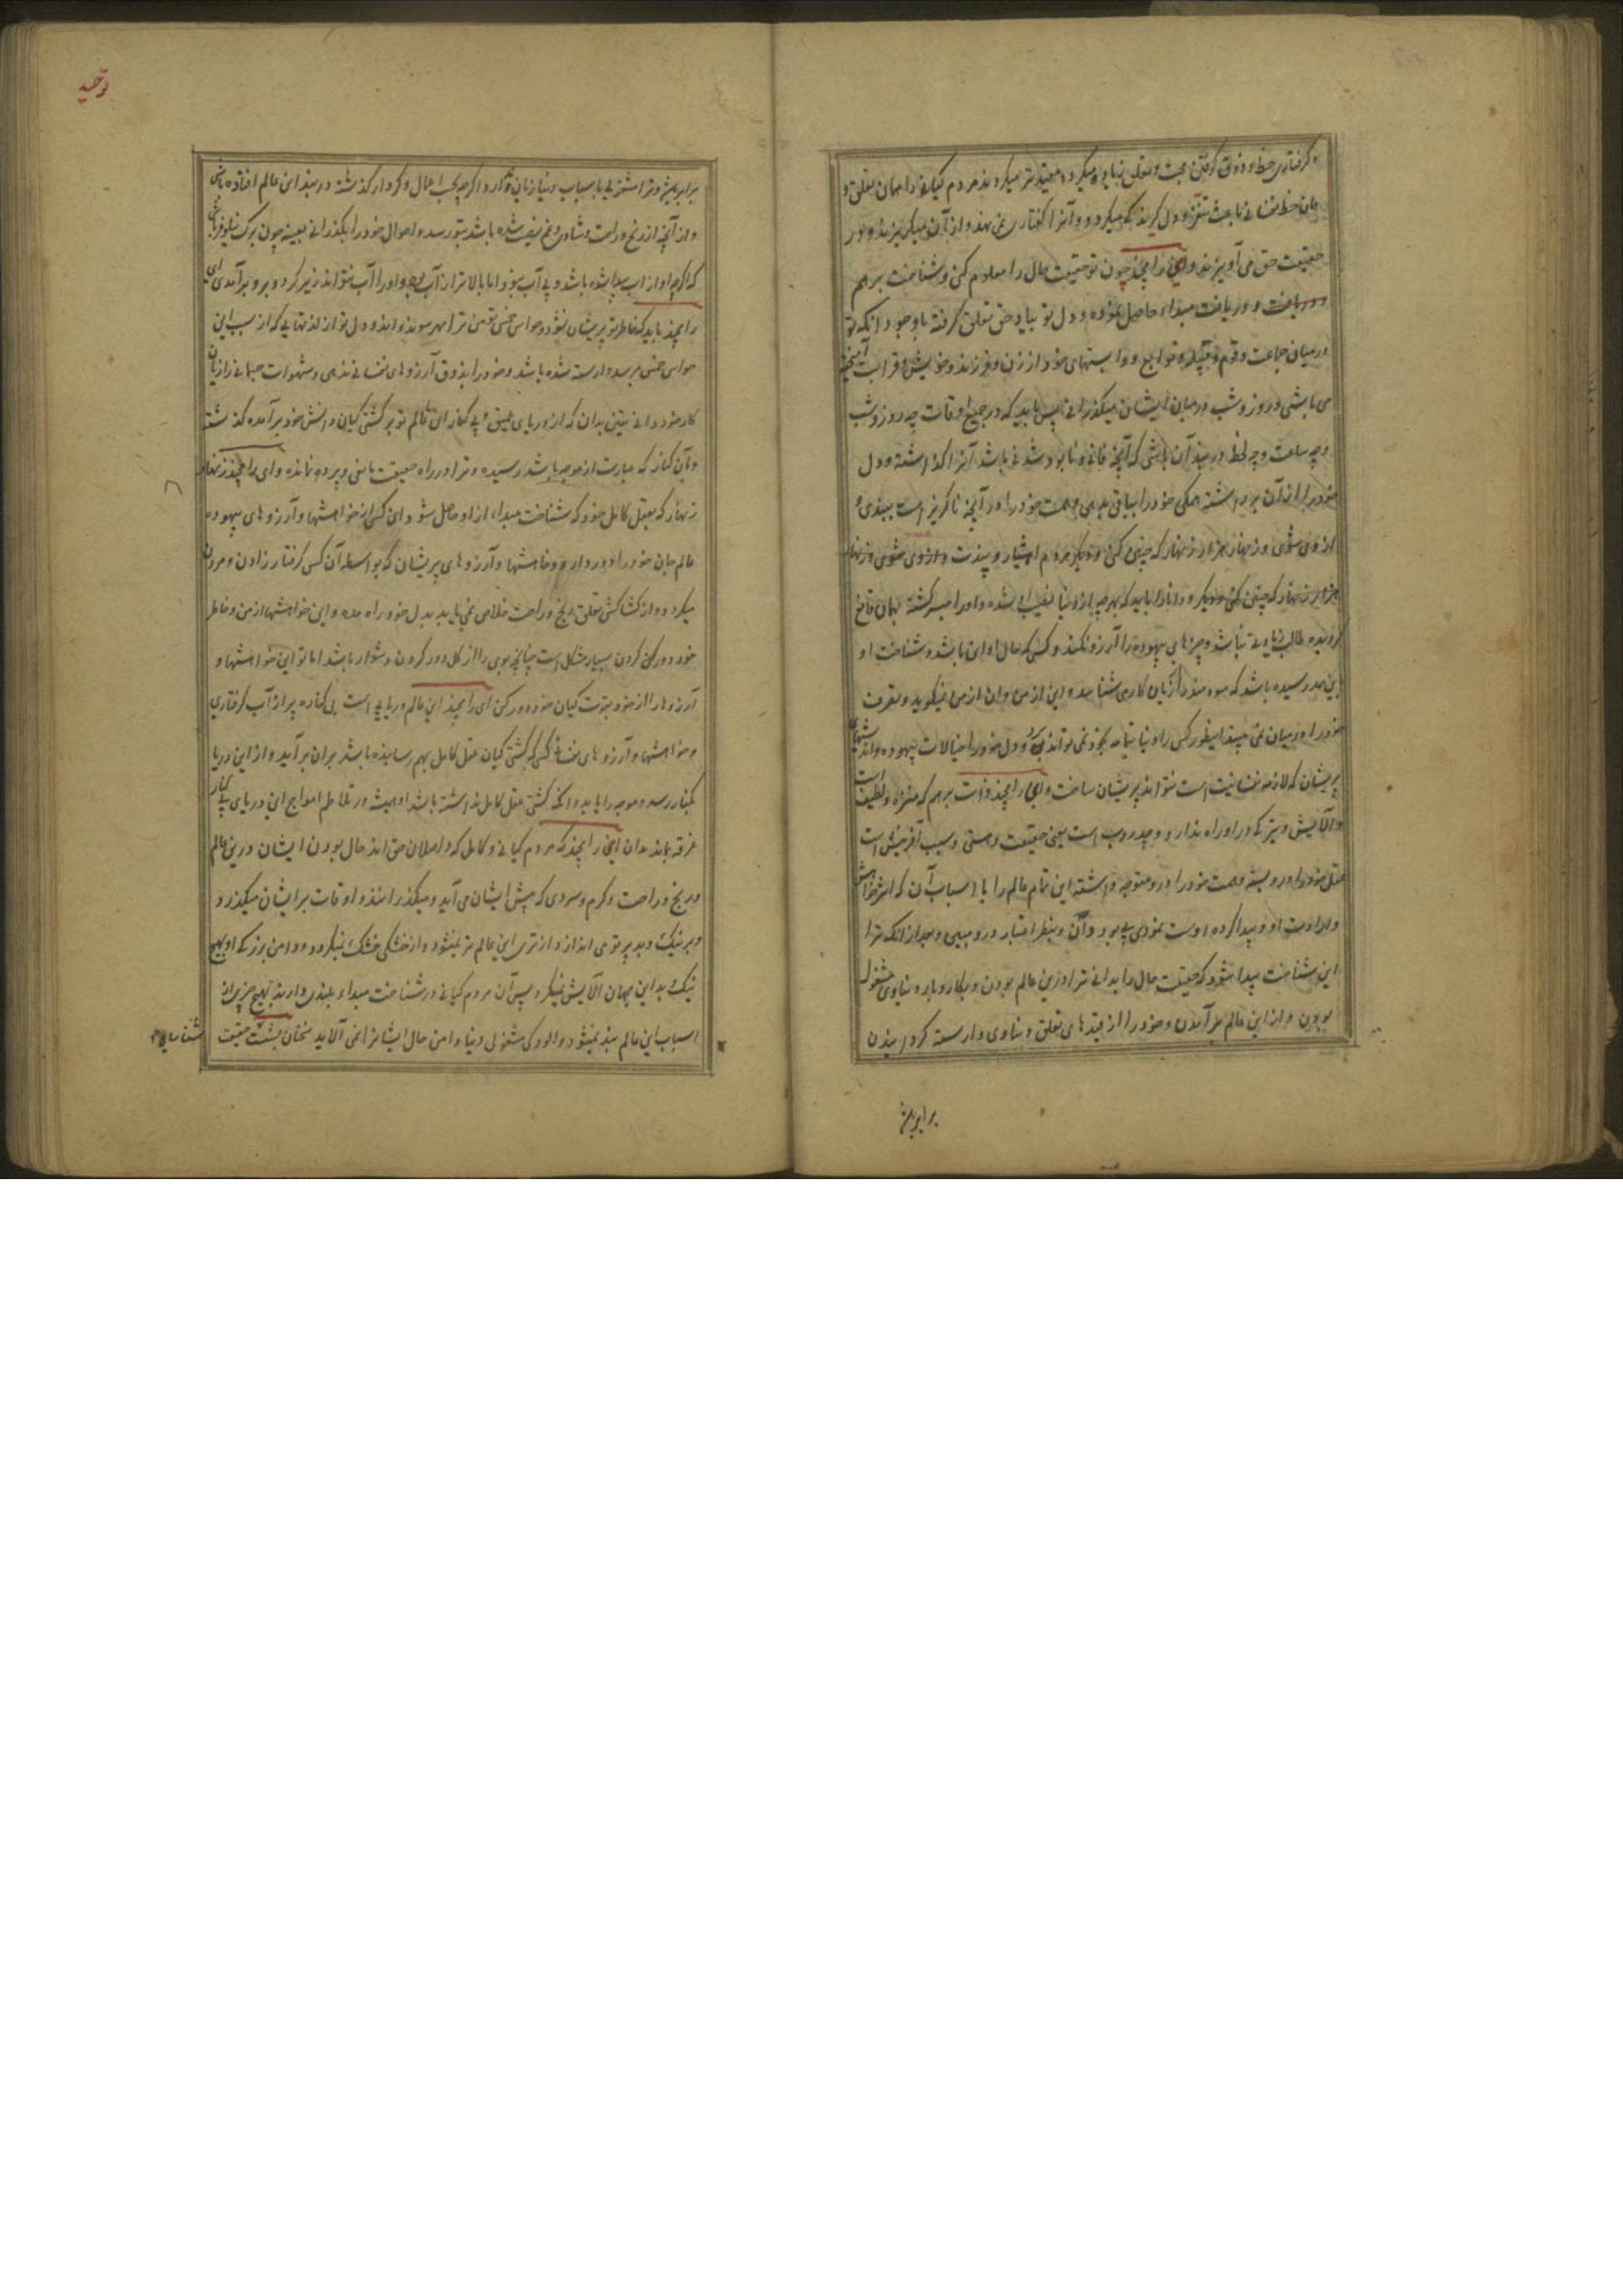 و گرفتاری حظ و ذوق گرفتن محبت و تعلق زیاده میگردد مقید تر میگردند مردم گیانی را همان تعلق و
همان حظ نفسانی باعث تنفر و دل گیرند که میگردد و آنرا گفتاری می نهند و از آن میگریزند و در
حقیقت حق می آویزند و ای رامچند چون تو حقیقت حال را معلوم کنی و شناخت برهم
و دریافت مبداء حاصل نموده و دل تو بیاد حق تعلق گرفته باوجود آنکه تو
درمیان جماعت و قوم و قبیله و توابع و وابستهای خود از زن و فرزند و خویش و قرابت آمیخته
می باشی و روز و شب درمیان ایشان میگذرانی پس باید که در جمیع اوقات چه روز و شب
و چه ساعت و چه لحظه در بند آن باشی که آنچه فانی و نابود شدنی باشد آنرا گذاشته و دل
خود را از آن برداشته همگی خود را بباقی بدهی و همت خود را در آنچه ناگریز است ببندی و
از وی شوی و زنهار هزار زنهار که چنین کنی و دیگر مردم هشیار
هزار زنهار که چنین کنی و دیگر دانا را باید که بهرچه از دنیا نصیب شده و او را میسر گشته بهمان قانع
گردیده طالب زیادتی نباشد و چیزهای بیهوده را آرزو نکند و کسی که حال او این باشد و شناخت او
باین حد رسیده باشد که سود خود را از زیان کار می شناسد و این از من و آن از من نمیگوید و تصرف
خود را درمیان نمی بیند اینطور کس را دنیا بتمامه بخود نمی تواند و دل خود را خیالات بیهوده و اندیشهای
پریشان که لازمه نفسانیت است نتواند پریشان ساخت و ای رامچند ذات برهم که منزه و لطیف است
و آلایش و تیرگی در او راه ندارد و چدروپ است یعنی حقیقت و هستی و سبب آفرینش است
عقل خود را درو بسته و همت خود را درو متوجه داشته این تمام عالم را با اسباب آن که اثر خواهش
و ارادت او و پیدا کرده اوست نمودی بی بود دان و بنظر اعتبار درو مبین و بعد از آنکه ترا
این شناخت پیدا شود که حقیقت حال را بدانی ترا درین عالم بودن و بکار و بار دنیاوی مشغول
بودن و از این عالم برآمدن و خود را از قیدهای تعلق دنیاوی وارسته گردانیدن
برابر باشد
توحید
برابر باشد و ترا مشغولی باسباب دنیا زیان نکارد اگرچه بحسب اعمال و کردار گذشته در بند این عالم افتاده باشی
و از آنچه از رنج و راحت و شادی و غم نصیب شده باشد بتو رسد و احوال خود را بگذرانی بعینه چون برگ نیلوفر باشی
که اگرچه او از آب پیدا شده باشد و بی آب نبود اما بالاتر از آب بود و او را آب نتواند زیر کرد و برو برآمد ای
رامچند باید که خاطر تو پریشان نشود و حواس خمس تو من ترا هر سو نبرد و دل تو از لذتهایی که از سبب این
حواس خمس میرسد وارسته شده باشد و خود را بذوق آرزوهای نفسانی ندهی و شهوات جسمانی را زیان
کار خود دانی یقین بدان که از دریای عمیق و بی کنار این عالم تو بر کشتی گیان و دانش خود برآمده گذشته
و بآن کنار که عبارت از موجه باشد رسیده و ترا در راه حقیقت مانعی و پرده نمانده و ای رامچند زنهار
زنهار که بعقل کامل خود که شناخت مبداء از او حاصل شود این کس از خواهشها و آرزوهای بیهوده
عالم جان خود را دور دارد و خواهشها و آرزوهای پریشان که بواسطه آن کس گرفتار زادن و مردن
میگردد و از کشاکش تعلق رنج و راحت خلاص نمی یابد بدل خود راه مده و این خواهشها از من و خاطر
خود دور کن گردن بسیار مشکل است چنانچه بوی را از گل دور کردن دشوار باشد اما تو این خواهشها و
آرزوها را از خود بقوت گیان خود دور کن ای رامچند این عالم دریایی است بی کناره پر از آب گرفتاری
و خواهشها و آرزوهای نفسانی کسی که کشتی گیان عقل کامل بهم رسانیده باشد بران برآید و از این دریا
بکنار رسد و موجه را یابد و آنکه کشتی عقل کامل نداشته باشد او همیشه در تلاطم امواج این دریای بی کنار
غرقه بماند بدان ای رامچند که مردم گیانی و کامل که واصلان حق اند حال بودن ایشان درین عالم
و رنج و راحت و گرم و سردی که پیش ایشان می آید و میگذرانند و اوقات بر ایشان میگذرد
و بر نیک و بد پرتو می اندازد از تری این عالم تر نمیشود و از خشکی خشک نمیگردد و دامن بزرگی او بهیچ
نیک و بد این جهان آلایش نمیگیرد پس آن مردم گیانی در شناخت مبداء بلندی دارند بهیچ چیز از
اسباب این عالم بند نمیشود و آلودگی مشغولی دنیا دامن حال ایشانرا نمی آلاید سخنان بششت حقیقت